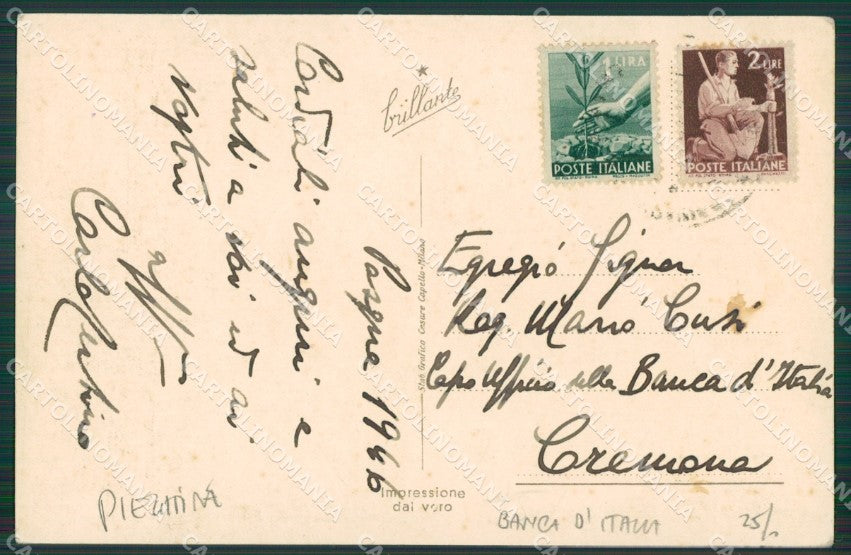 Cordiali auguri e
saluti a voi ed ai
vostri
Pasqua 1946
brillante
Stab. Grafico Cesare Capello-Milano
Impressione
dal vero
1 LIRA
POSTE ITALIANE
2 LIRE
POSTE ITALIANE
Egregio Signor
Rag. Mario Cusi
Capo Ufficio della Banca d'Italia
Cremona
BANCA D'ITALIA
25/.
CARTOLINOMANIA